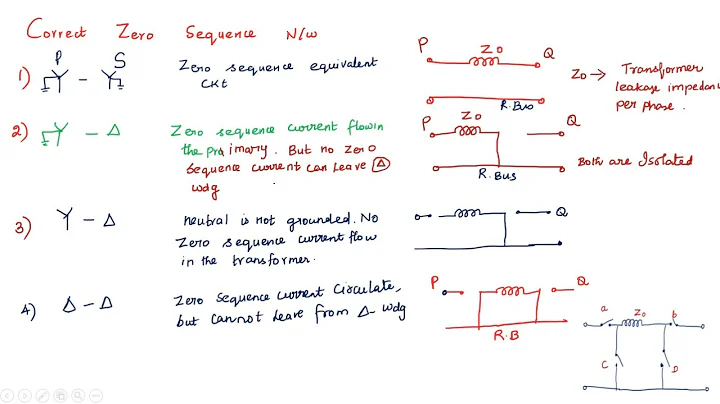 Correct Zero Sequence N/w
P S
1) Y - Y Zero sequence equivalent
CKt
P Z0 Q
R.Bus
Z0 → Transformer
leakage impedan
per phase.
2) Y - Δ Zero sequence current flowin
the primary. But no Zero
sequence current can leave Δ
wdg
P Z0 Q
R.Bus
Both are Isolated
3) Y - Δ neutral is not grounded. No
Zero sequence current flow
in the transformer.
Q
4) Δ - Δ Zero sequence current Circulate,
but cannot leave from Δ- wdg
P Q
R.B
a Z0 b
C D